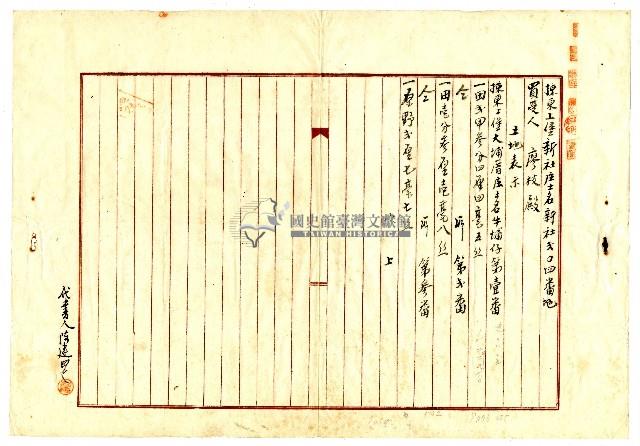 捒東上堡新社庄土名新社弍〇四番地
買受人 廖枝殿
土地表示
捒東上堡大埔厝庄土名牛埔仔第壹番
一田弍甲參分四厘四毫五丝
仝 所 第弍番
一田壱分參厘壱毫八丝
仝 所 第參番
一原野弍厘七毫七
上
國史館臺灣文獻館
TAIWAN HISTORICA
代書人